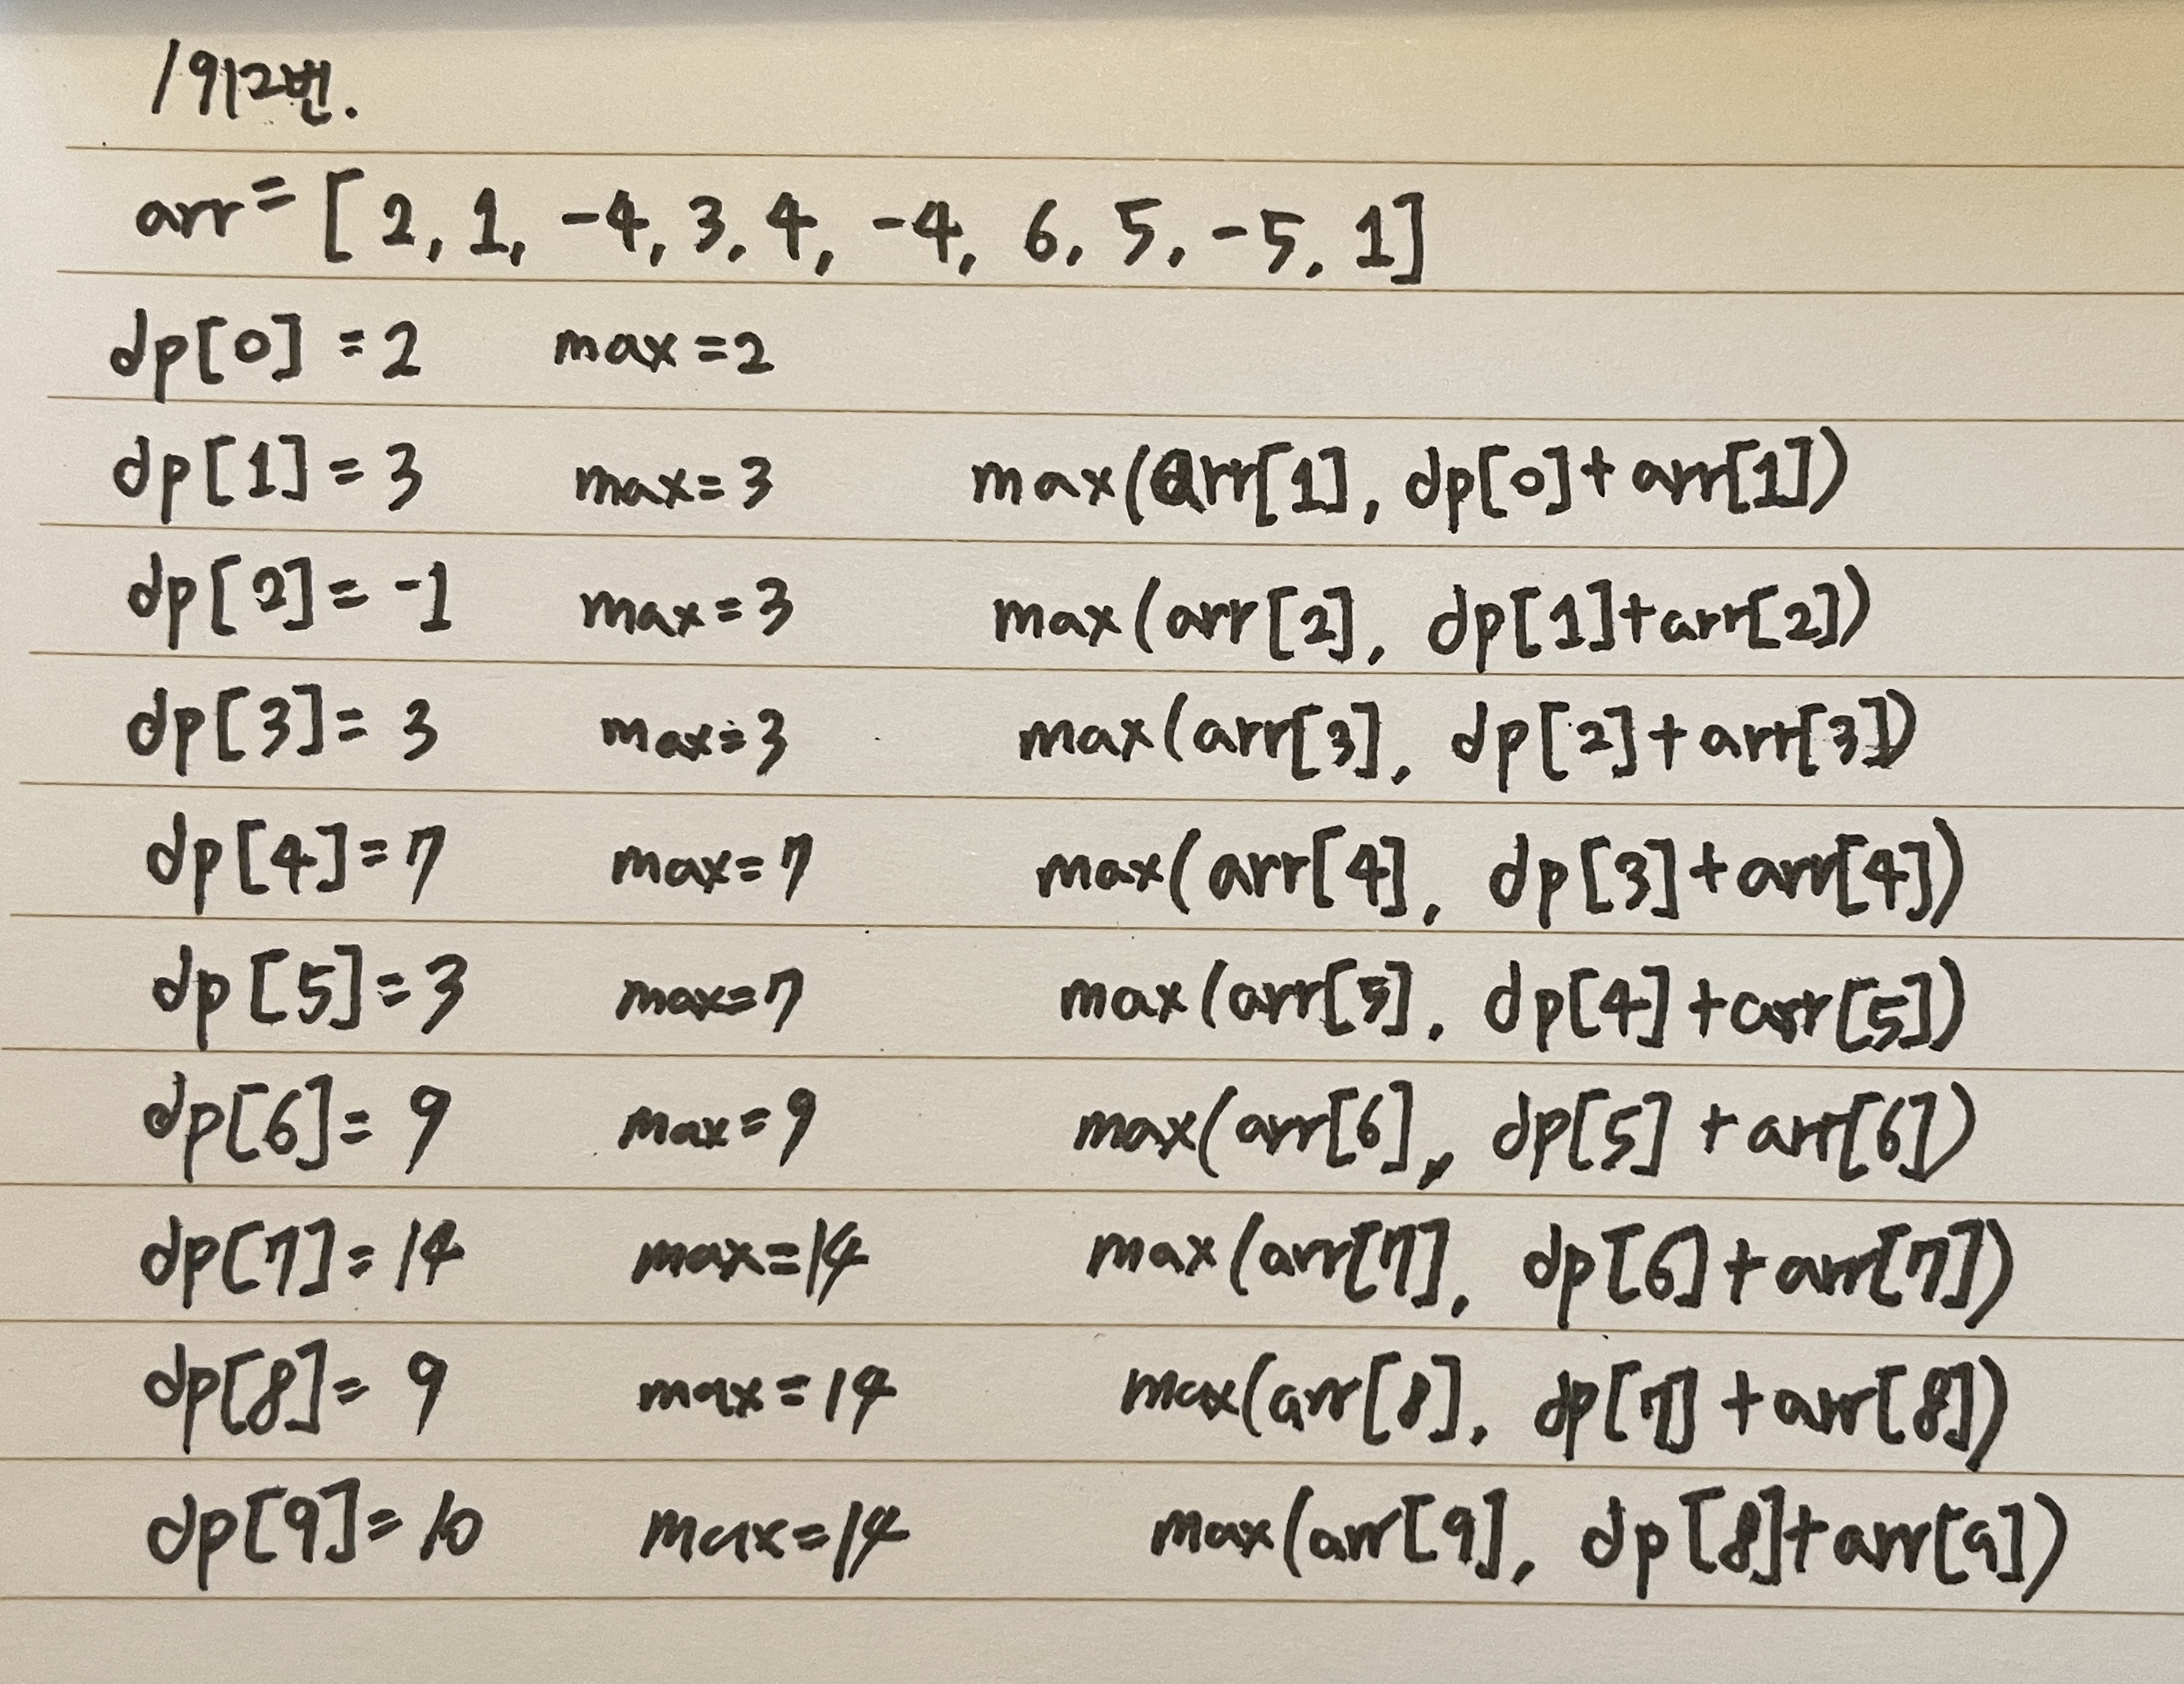 1912번.
arr = [ 2, 1, -4, 3, 4, -4, 6, 5, -5, 1]
dp[0] = 2 max = 2
dp[1] = 3 max = 3 max(arr[1], dp[0]+arr[1])
dp[2] = -1 max = 3 max(arr[2], dp[1]+arr[2])
dp[3] = 3 max = 3 max(arr[3], dp[2]+arr[3])
dp[4] = 7 max = 7 max(arr[4], dp[3]+arr[4])
dp[5] = 3 max = 7 max(arr[5], dp[4]+arr[5])
dp[6] = 9 max = 9 max(arr[6], dp[5]+arr[6])
dp[7] = 14 max = 14 max(arr[7], dp[6]+arr[7])
dp[8] = 9 max = 14 max(arr[8], dp[7]+arr[8])
dp[9] = 10 max = 14 max(arr[9], dp[8]+arr[9])